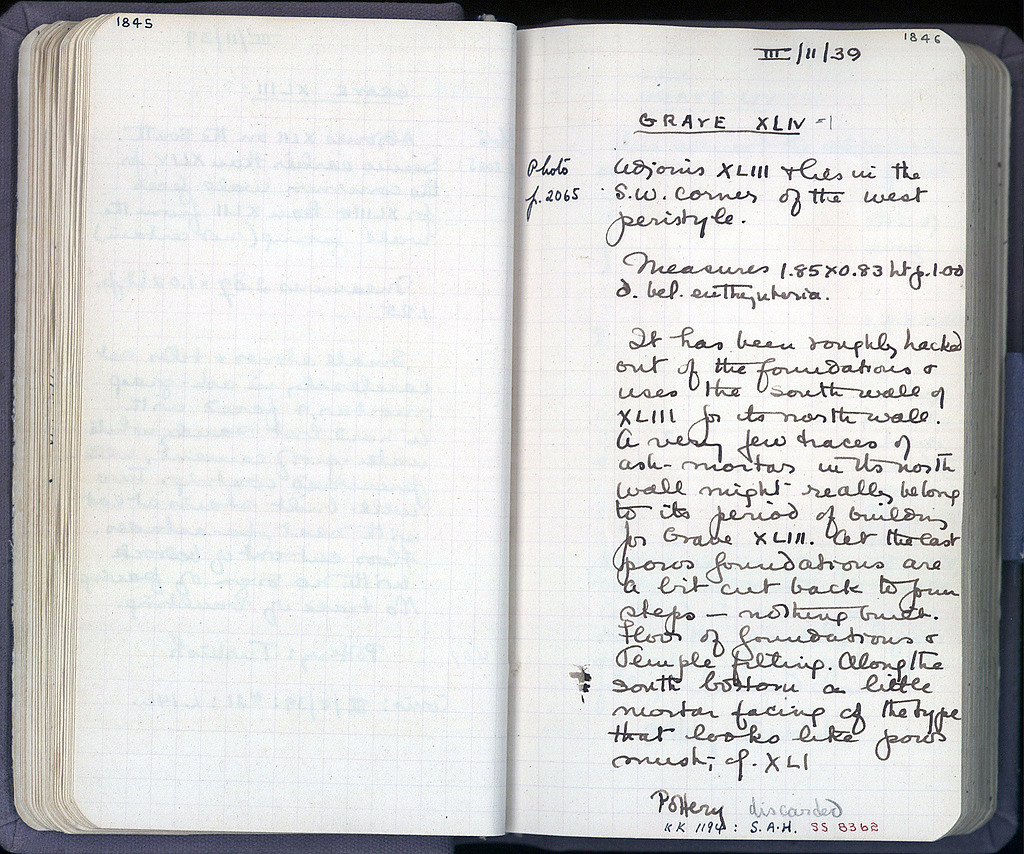 1845
1846
III/11/39
GRAVE XLIV =1
Photo
p. 2065
Adjoins XLIII & lies in the
S.W. corner of the west
peristyle.
Measures 1.85 x 0.83 ht p. 1.00
d. bel. euthynteria.
It has been roughly hacked
out of the foundations &
uses the south wall of
XLIII for its north wall.
A very few traces of
ash-mortar in its north
wall might really belong
to its period of building
for Grave XLIII. At the East
poros foundations are
a bit cut back to form
steps — nothing built.
Floor of foundations &
Temple filling. Along the
south bottom a little
mortar facing of the type
that looks like poros
must; cf. XLI
Pottery discarded
KK 1194: S.A.H. SS 8362